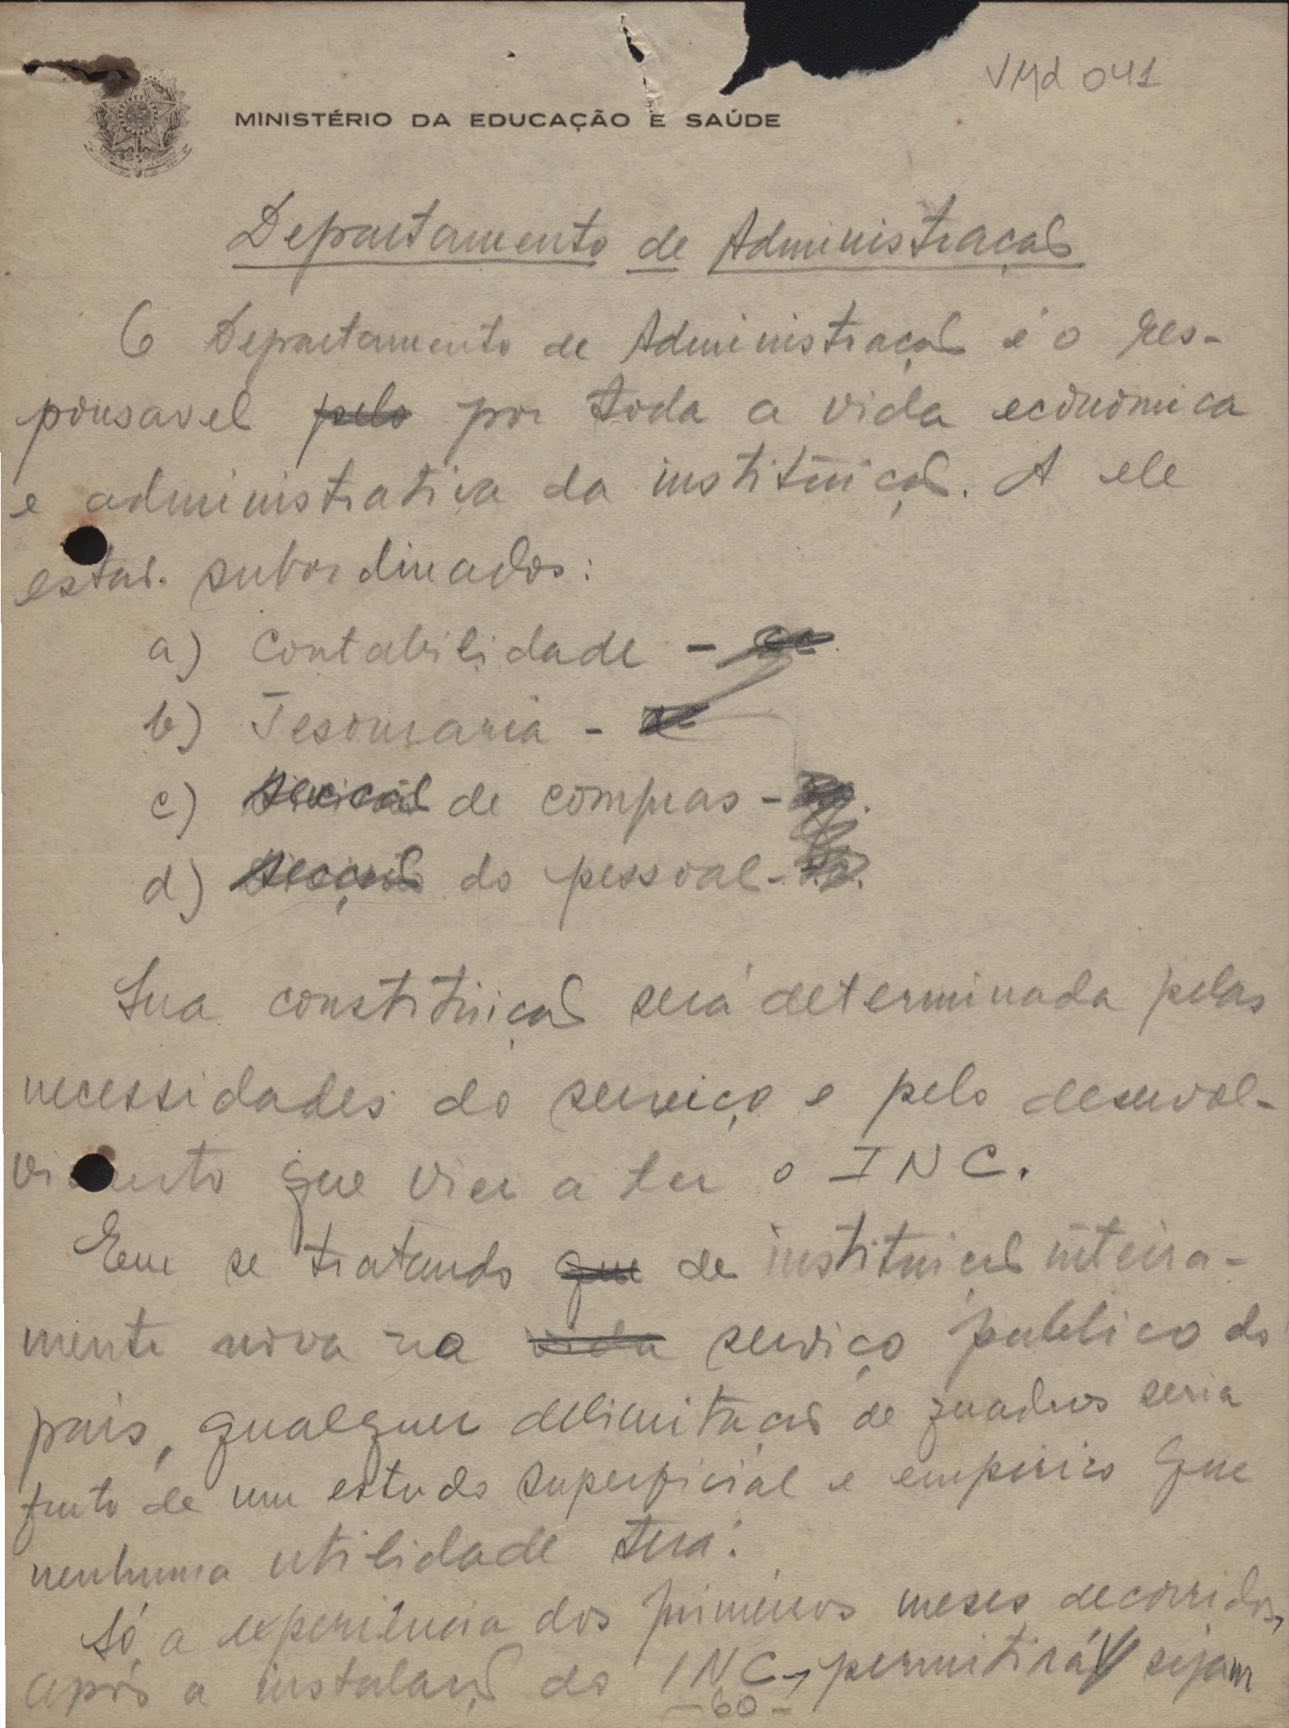 VMd 041
MINISTÉRIO DA EDUCAÇÃO E SAÚDE
Departamento de Administração
O Departamento de Administração é o res-
ponsavel pelo por toda a vida economica
e administrativa da instituição. A ele
estão subordinados:
a) Contabilidade -
b) Tesouraria -
c) de compras -
d) do pessoal -
Sua constituição será determinada pelas
necessidades do serviço e pelo desenvol-
vimento que vier a ter o INC.
Em se tratando que de instituição inteira-
mente nova na vida serviço publico do
pais, qualquer delimitação de quadros seria
fruto de um estudo superficial e empirico que
nenhuma utilidade terá.
Só a experiência dos primeiros meses decorridos,
após a instalação do INC, permitirá sejam
-60-